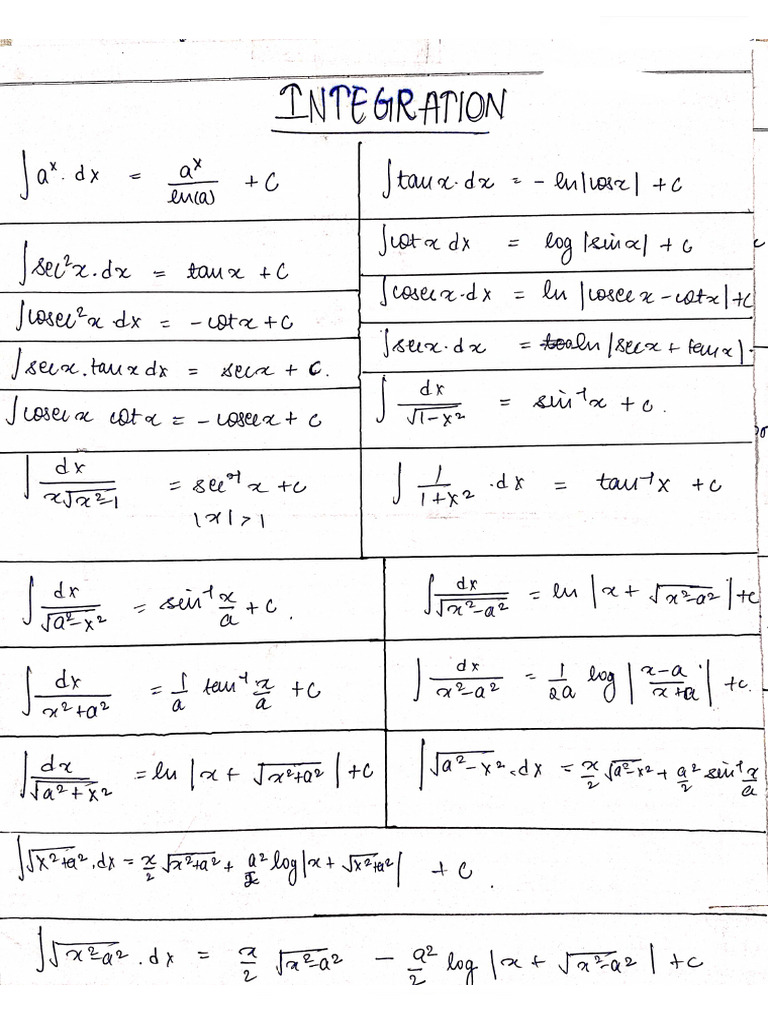 INTEGRATION
∫aˣ. dx = aˣ/ln(a) + C
∫tanx.dx = - ln|cosx| + C
∫sec²x.dx = tanx + C
∫cotx dx = log|sinx| + C
∫cosec²x dx = -cotx + C
∫cosecx.dx = ln |cosecx - cotx| + C
∫secx.tanx dx = secx + C.
∫secx.dx = ln|secx + tanx|.
∫cosecx cotx = -cosecx + C
∫ dx/√(1-x²) = sin⁻¹x + C.
∫ dx/(x√(x²-1)) = sec⁻¹x + C
|x| > 1
∫ 1/(1+x²) .dx = tan⁻¹x + C
∫ dx/√(a²-x²) = sin⁻¹ x/a + C.
∫ dx/√(x²-a²) = ln |x + √(x²-a²)| + C
∫ dx/(x²+a²) = 1/a tan⁻¹ x/a + C
∫ dx/(x²-a²) = 1/2a log |(x-a)/(x+a)| + C.
∫ dx/√(a²+x²) = ln |x + √(x²+a²)| + C
∫√(a²-x²).dx = x/2 √(a²-x²) + a²/2 sin⁻¹ x/a
∫√(x²+a²).dx = x/2 √(x²+a²) + a²/2 log|x + √(x²+a²)| + C.
∫√(x²-a²).dx = x/2 √(x²-a²) - a²/2 log |x + √(x²-a²)| + C